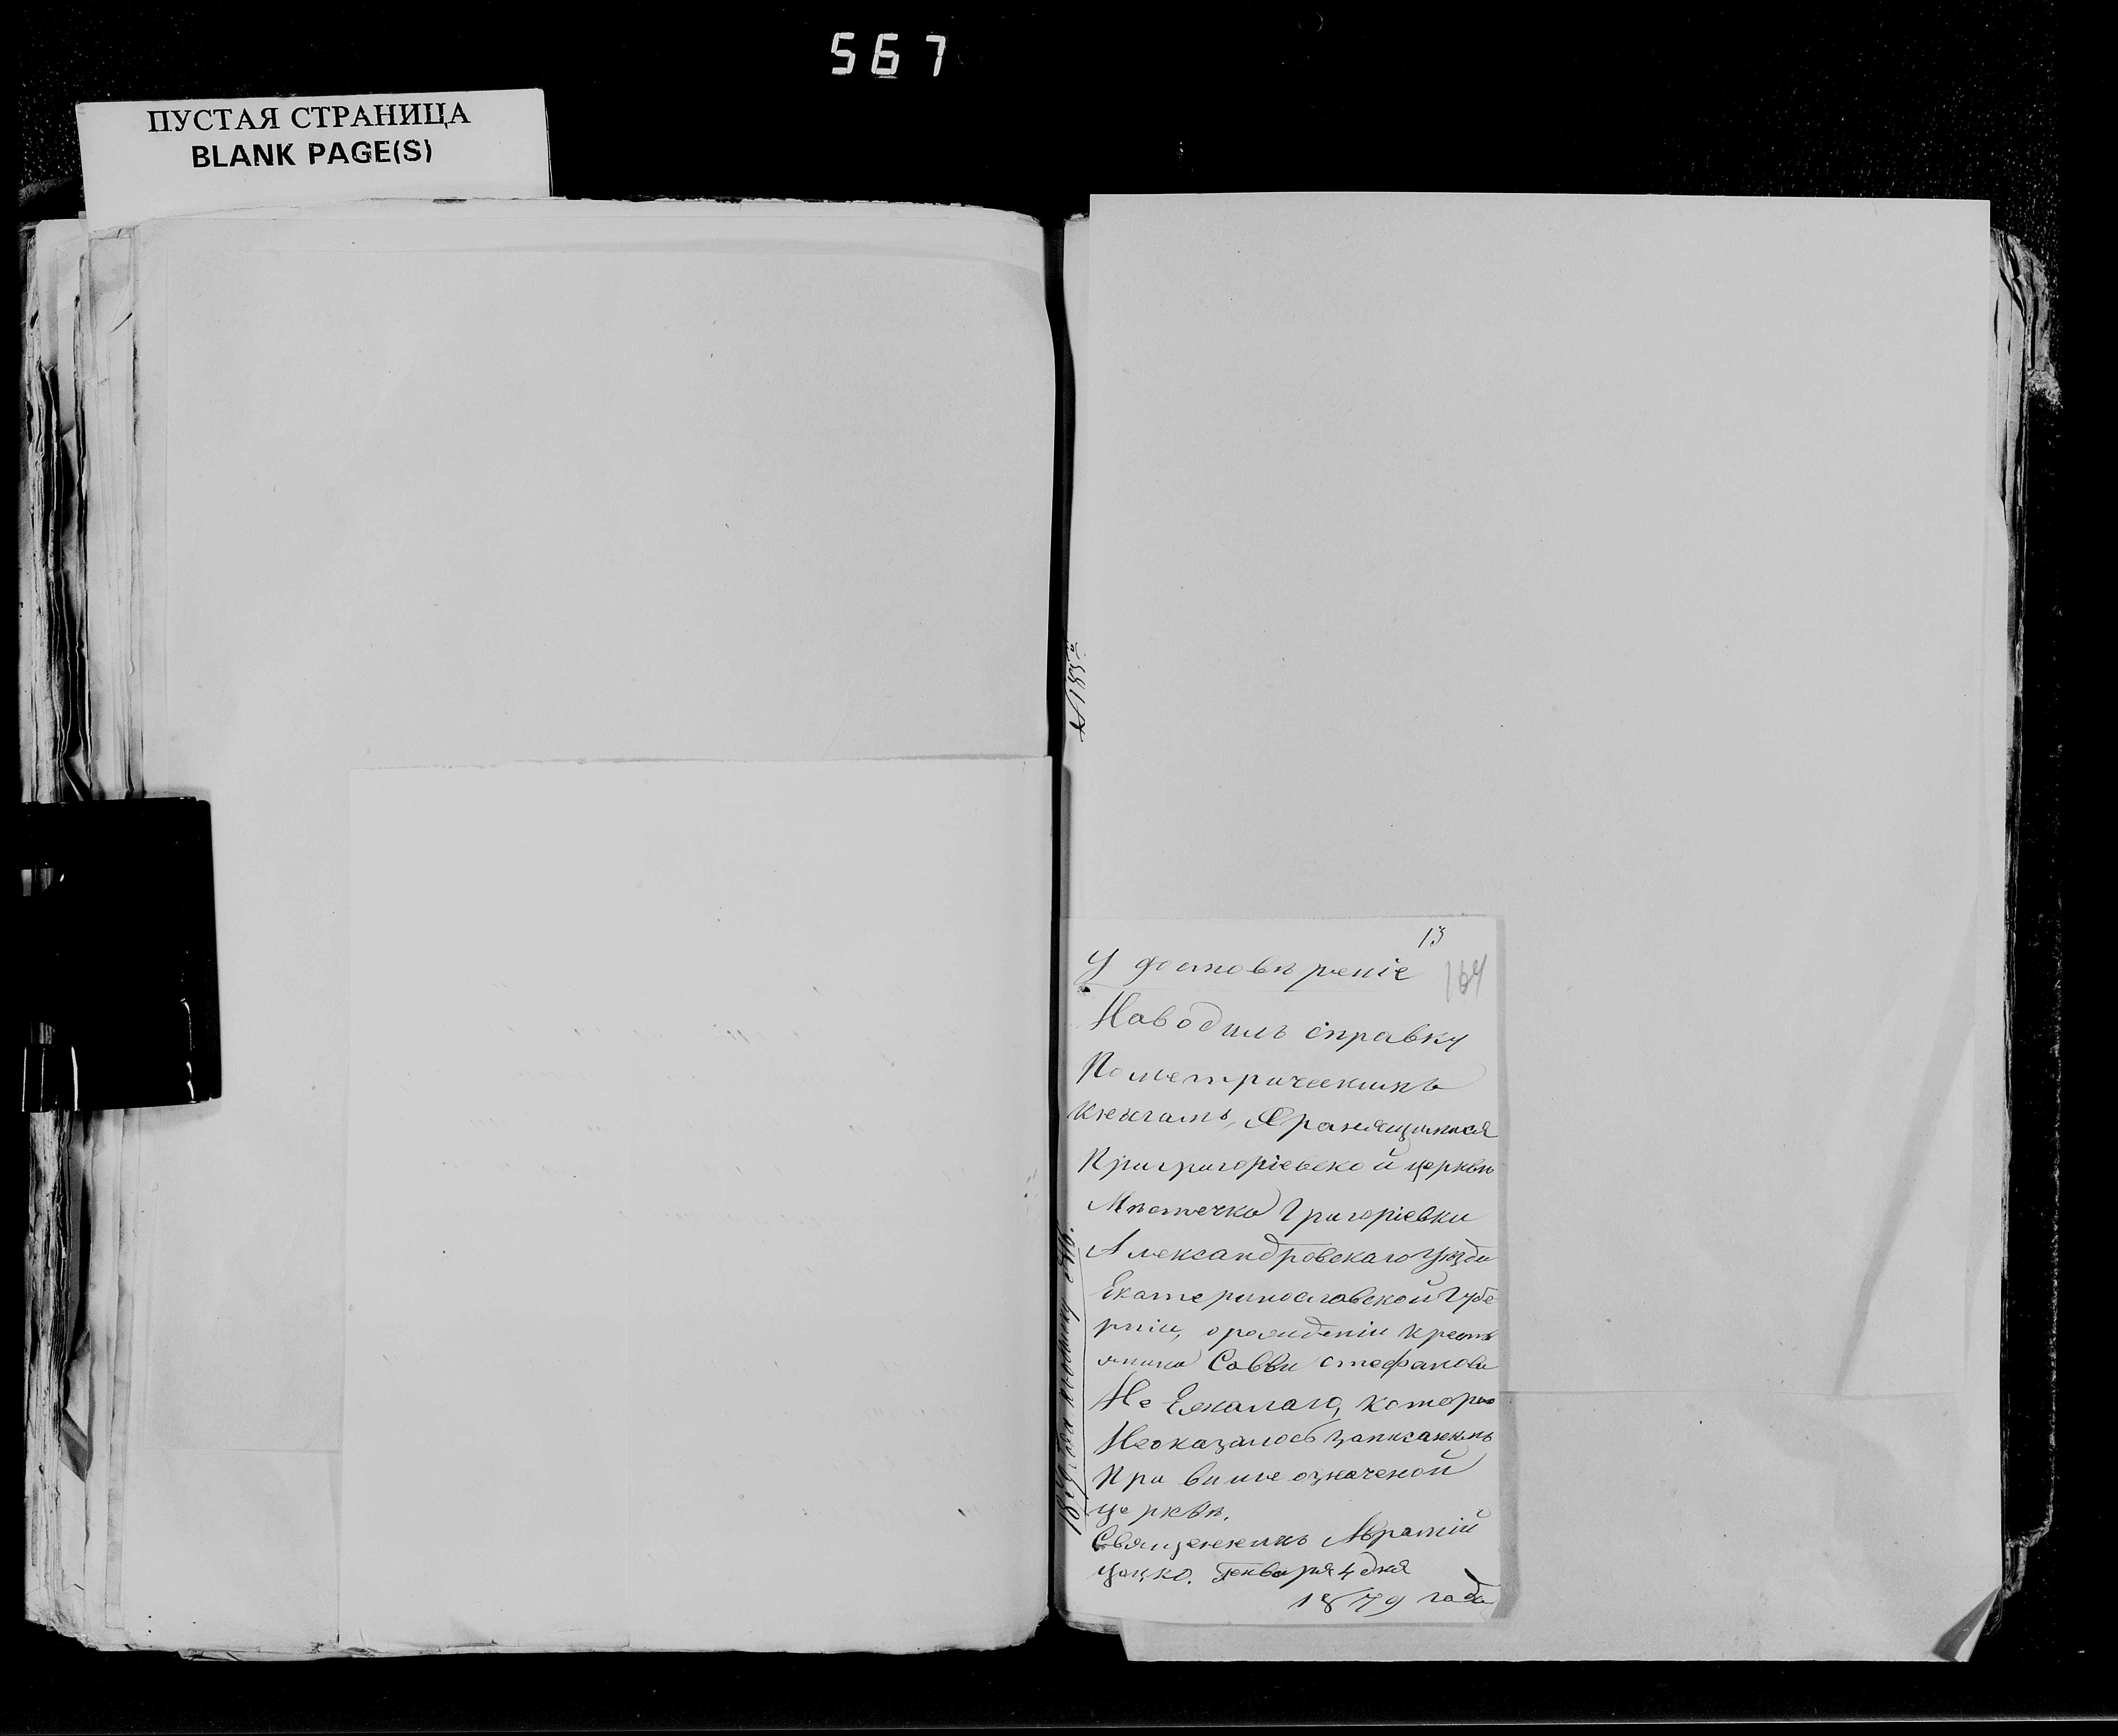 567
ПУСТАЯ СТРАНИЦА
BLANK PAGE(S)
13
164
Удостовѣреніе
Наводилъ справку
Пометрическимъ
книгамъ, хранящимся
Пригригоріевской церквѣ
Мѣстечка Григоріевки
Александровскаго Уѣзда
Екатеринославской Губе
рніи, орождении крестъ
янина Саввы Стефанова
Не
Неоказалось Записаннымъ
При выше означеной
церквѣ.
Священникъ
Генваря 4 дня
1879 года